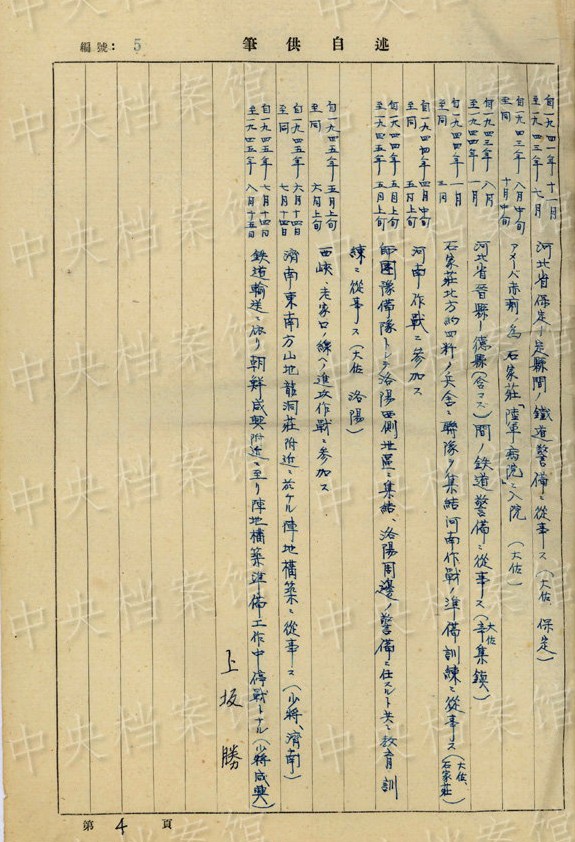 編號: 5
述自供筆
自一九四一年十一月
至一九四三年七月 河北省保定―定縣間ノ鐵道警備ニ從事ス(大佐、保定)
自一九四三年八月中旬
至同 十月中旬 アメーバ赤痢ノ為石家莊「陸軍病院」ニ入院 (大佐)
自一九四三年八月
至一九四四年一月 河北省晉縣―德縣(含マズ)間ノ鉄道警備ニ從事ス(大佐 辛集鎮)
自一九四四年一月
至同 三月 石家莊北方約四粁ノ兵舎ニ聯隊ヲ集結河南作戰ノ準備訓練ニ從事ス(大佐、石家莊)
自一九四四年四月中旬
至同 五月上旬 河南作戰ニ參加ス
自一九四四年五月上旬
至一九四五年五月上旬 師團豫備隊トシテ洛陽西側地區ニ集結、洛陽周邊ノ警備ニ任スルト共ニ教育訓
練ニ從事ス(大佐 洛陽)
自一九四五年五月上旬
至同 六月上旬 西峽、老家口ノ線ヘノ進攻作戰ニ參加ス
自一九四五年六月十四日
至同 七月十四日 濟南東南方山地龍洞莊附近ニ於ケル陣地構築ニ從事ス(少將、濟南)
自一九四五年七月十四日
至一九四五年八月十五日 鉄道輸送ニ依リ朝鮮咸興附近ニ至リ陣地構築準備工作中停戰トナル(少將咸興)
上坂 勝
第 4 頁
中央档案馆